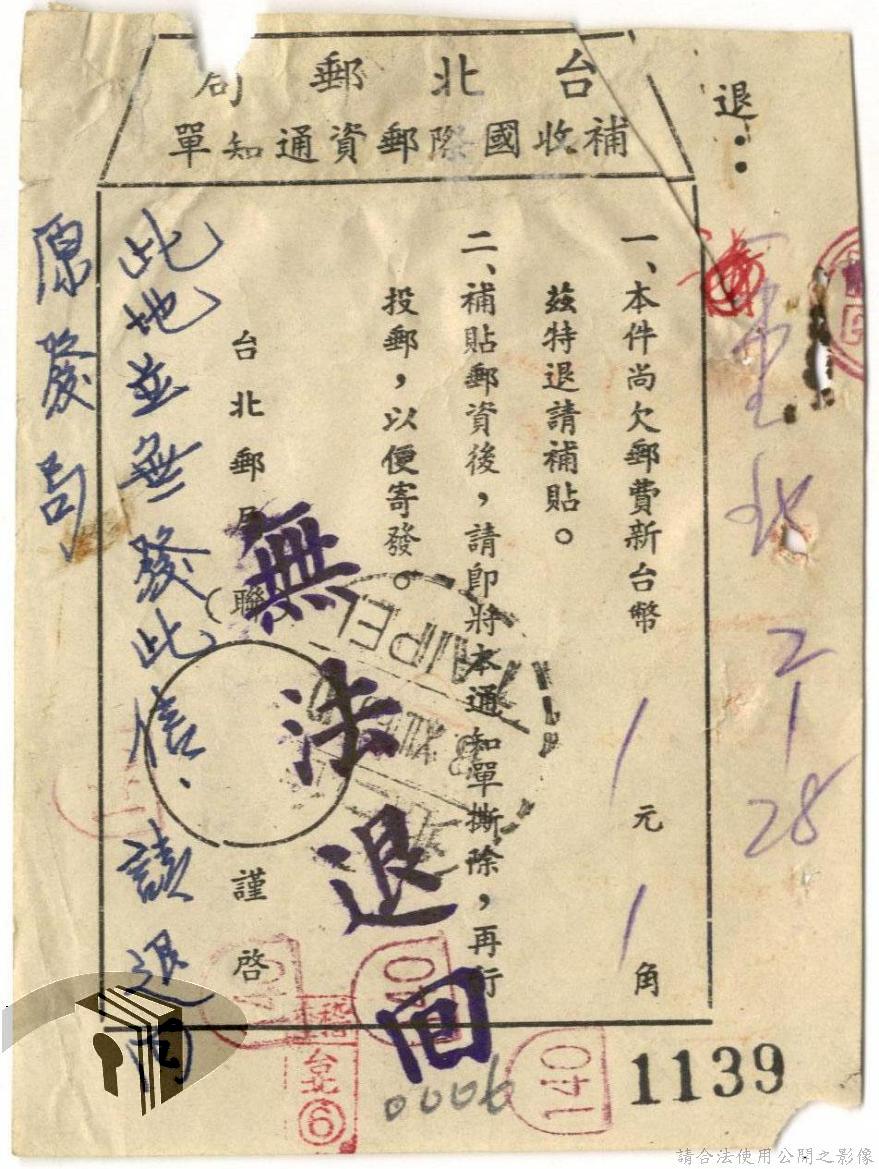 台北郵局
補收國際郵資通知單
退：
一、本件尚欠郵費新台幣1元1角
茲特退請補貼。
二、補貼郵資後，請即將本通知單撕除，再行
投郵，以便寄發。
台北郵局
（聯）
謹啓
無法退回
TAIPEI
此地並無發此信、請退回
原發局
2
1
28
140
140
140
稽
台北
6
9000
1139
請合法使用公開之影像